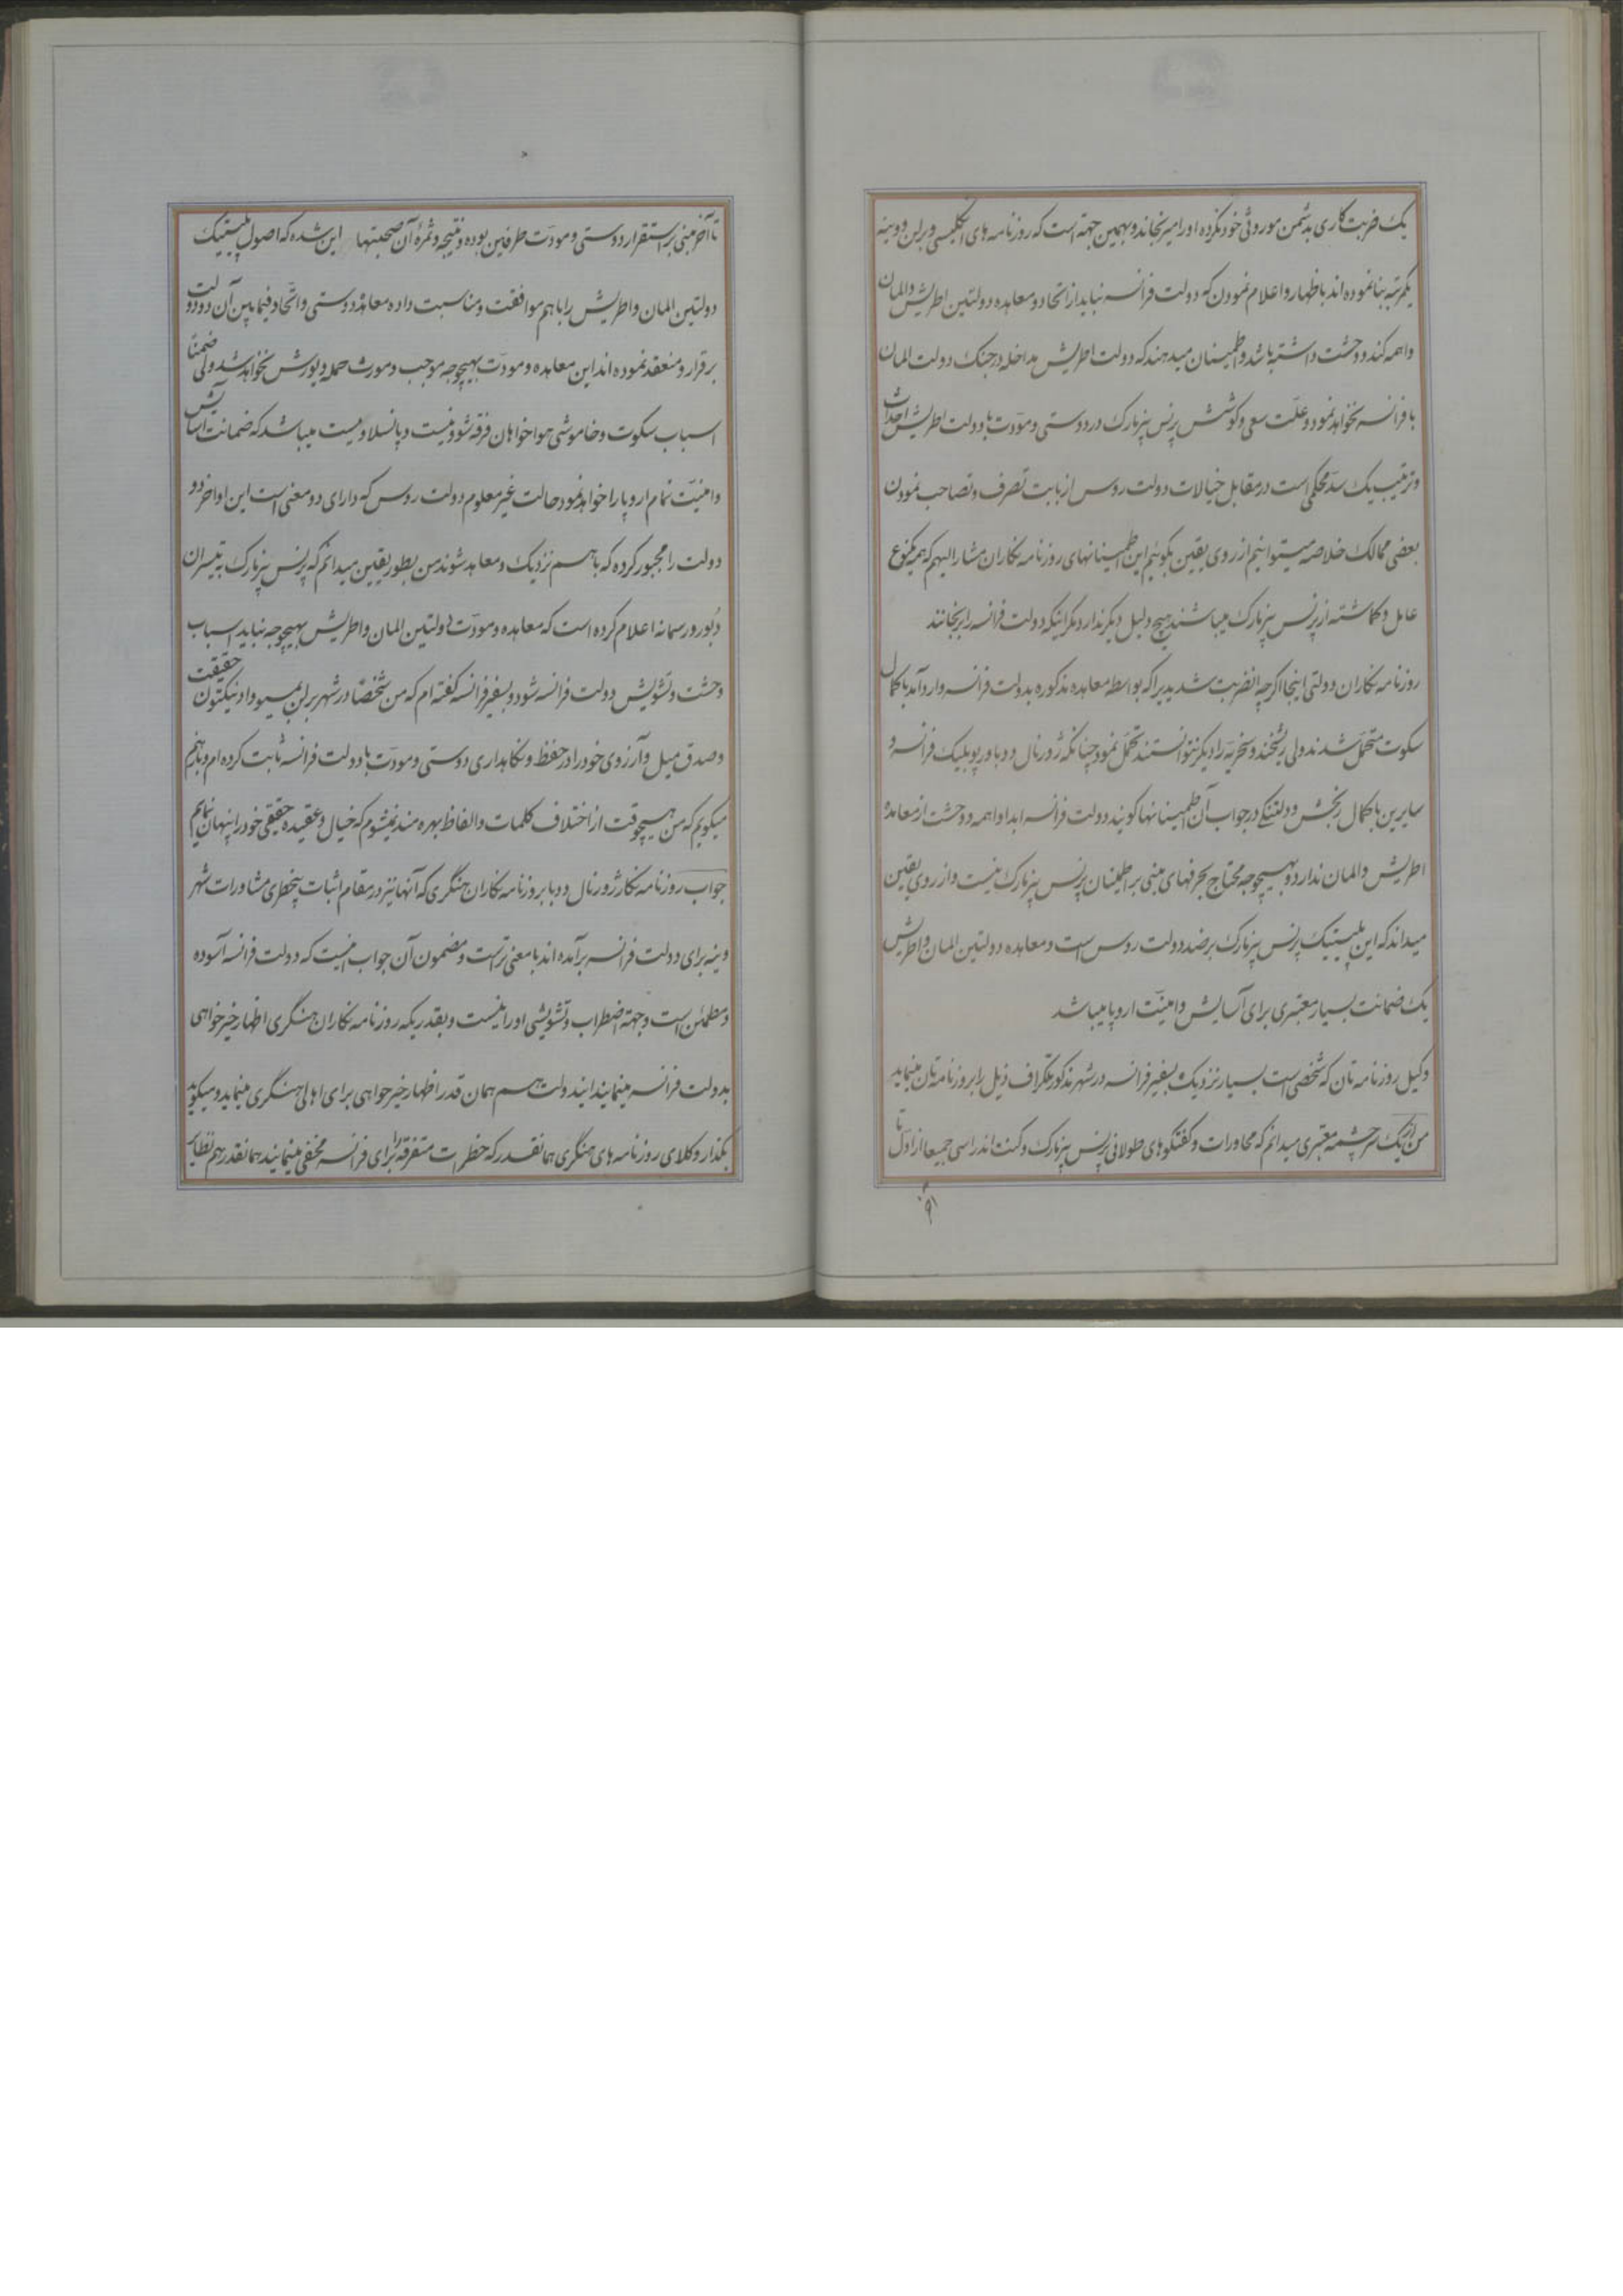 یک ضربت کاری بدشمن موروثی خود نکرده او را میرنجاند و بهمین جهة است که روزنامه های انگلیسی و برلن و وینه
یکمرتبه بنا نموده اند باظهار و اعلام نمودن که دولت فرانسه نباید از اتحاد و معاهده دولتین اطریش و المان
واهمه کند و وحشت داشته باشد و اطمینان میدهند که دولت اطریش مداخله در جنک دولت المان
با فرانسه نخواهد نمود و علت سعی و کوشش پرنس بیزمارک در دوستی و مودّت با دولت اطریش احداث
و ترتیب یک سدّ محکمی است در مقابل خیالات دولت روس از بابت تصرف و تصاحب نمودن
بعضی ممالک خلاصه میتوانیم از روی یقین بگوئیم این اطمینانهای روزنامه نکاران مشار الیهم که همه یکنوع
عامل و کماشته از پرنس بیزمارک میباشند هیچ دلیل دیکر ندارد مکر اینکه دولت فرانسه را برنجانند
روزنامه نکاران دولتی اینجا اکرچه آنضربت شدید را که بواسطه معاهده مذکوره بدولت فرانسه وارد آمد با کمال
سکوت متحمّل شدند ولی ریشخند و سخریّه را دیکر نتوانستند تحمّل نمود چنانکه ژورنال دو دبا و رپوبلیک فرانسه و
سایرین با کمال رنجش و دلتنکی در جواب آن اطمینانها کویند دولت فرانسه ابدا واهمه و وحشت از معاهده
اطریش و المان ندارد و بهیچوجه محتاج بحرفهای مبنی بر اطمینان پرنس بیزمارک نیست و از روی یقین
میداند که این پلیتیک پرنس بیزمارک بر ضد دولت روس است و معاهده دولتین المان و اطریش
یک ضمانت بسیار معتبری برای آسایش و امنیّت اروپا میباشد
وکیل روزنامه تان که شخصی است بسیار نزدیک بسفیر فرانسه در شهر مذکور تلکراف ذیل را بروزنامه تان مینماید
من از یک سرچشمه معتبری میدانم که محاورات و کفتکوهای طولانی پرنس بیزمارک و کنت اندراسی جمیعا از اوّل تا
تا آخر مبنی بر استقرار دوستی و مودّت طرفین بوده و نتیجه و ثمرهٔ آن صحبتها این شده که اصول پلیتیک
دولتین المان و اطریش را با هم موافقت و مناسبت داده معاهده دوستی و اتّحاد فیمابین آن دو دولت
برقرار و منعقد نموده اند این معاهده و مودّت بهیچوجه موجب و مورث حمله و یورش نخواهد شد ولی ضمناً
اسباب سکوت و خاموشی هواخواهان فرقه شوونیست و پانسلاویست میباشد که ضمانت آسایش
و امنیّت تمام اروپا را خواهد نمود حالت غیر معلوم دولت روس که دارای دو معنی است این اواخر دو
دولت را مجبور کرده که با هم نزدیک و معاهد شوند من بطور یقین میدانم که پرنس بیزمارک به تیسران
دبور و رسمانه اعلام کرده است که معاهده و مودّت دولتین المان و اطریش بهیچوجه نباید اسباب
وحشت و تشویش دولت فرانسه شود و بسفیر فرانسه کفته ام که من شخصاً در شهر برلن بمسیو وادنیکتون حقیقت
و صدق میل و آرزوی خود را در حفظ و نکاهداری دوستی و مودّت با دولت فرانسه ثابت کرده ام و باز هم
میکویم که من هیچوقت از اختلاف کلمات و الفاظ بهره مند نمیشوم که خیال و عقیده حقیقی خود را پنهان نمایم
جواب روزنامه نکار ژورنال دو دبا بروزنامه نکاران هنکری که آنها نیز در مقام اثبات بیخطری مشاورات شهر
وینه برای دولت فرانسه برآمده اند با معنی تر است و مضمون آن جواب اینست که دولت فرانسه آسوده
و مطمئن است و جهة اضطراب و تشویشی او را نیست و بقدریکه روزنامه نکاران هنکری اظهار خیرخواهی
بدولت فرانسه مینمایند ایندولت هم همان قدر اظهار خیرخواهی برای اهالی هنکری مینماید و میکوید
بگذار وکلای روزنامه های هنکری همانقدر که خطرات متفرقه را برای فرانسه مخفی مینمایند همانقدر هم